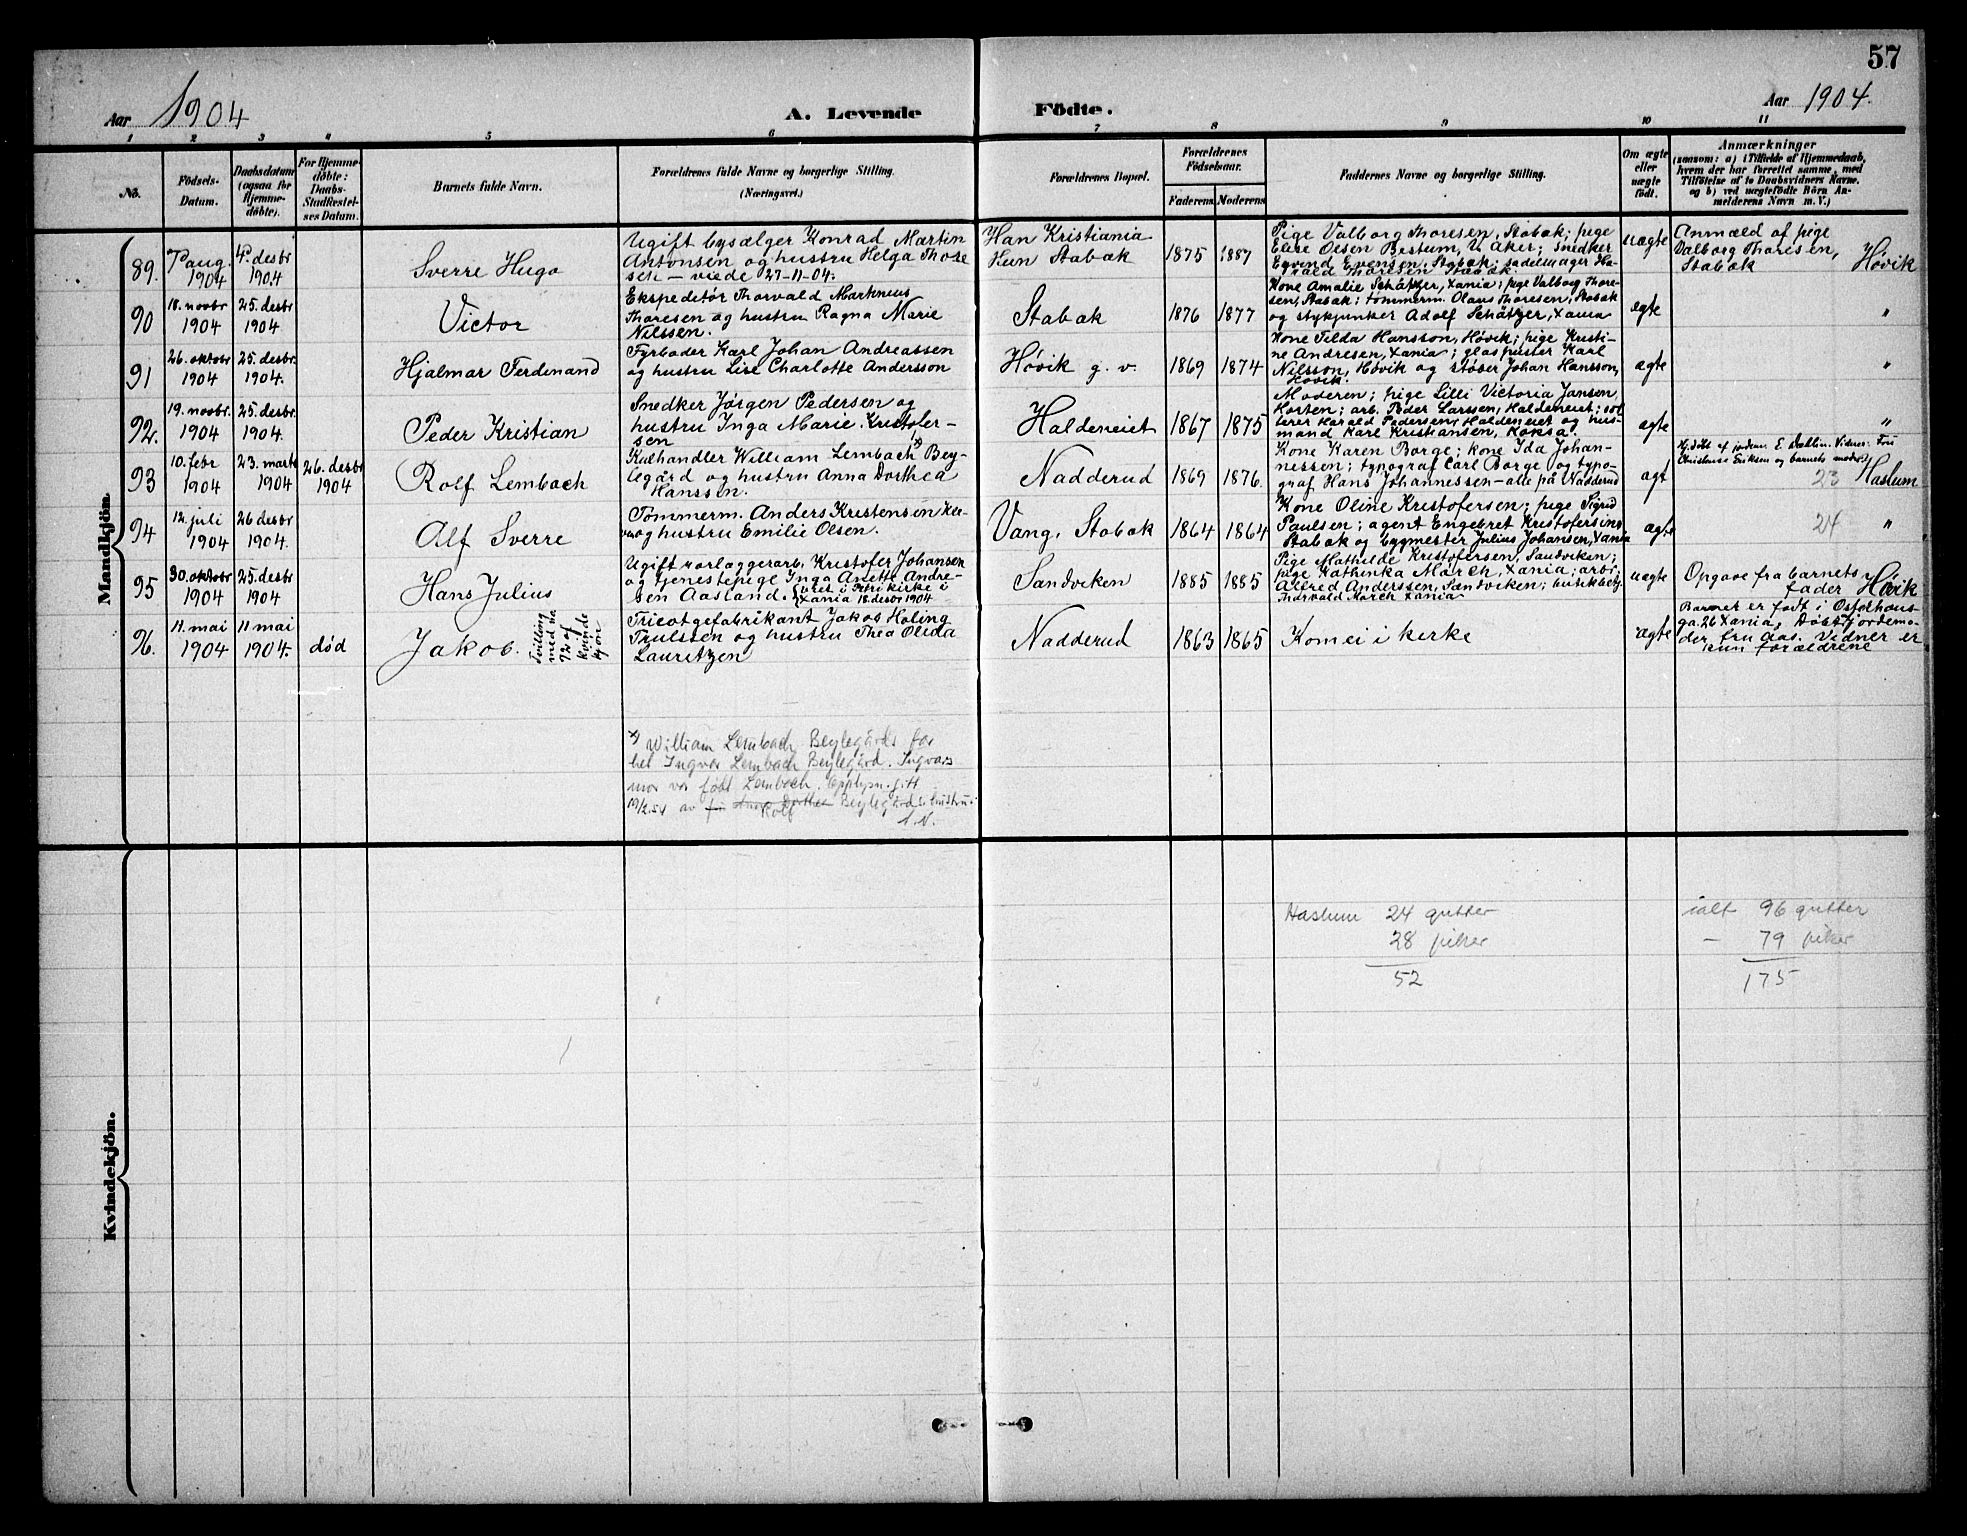 57
Aar 1904
A. Levende Födte.
Aar 1904.
1 2 3 4 5 6 7 8 9 10 11
No.
Födsels-
Datum.
Daabsdatum
(ogsaa for
Hjemme-
döbte).
For Hjemme-
döbte:
Daabs-
Stadfæstel-
ses Datum.
Barnets fulde Navn.
Forældrenes fulde Navne og borgerlige Stilling.
(Næringsvei.)
Forældrenes Bopæl.
Forældrenes
Födselsaar.
Faderens Moderens
Faddernes Navne og borgerlige Stilling.
Om ægte
eller
uægte
født.
Anmærkninger
(saasom: a) i Tilfælde af Hjemmedaab,
hvem der har forrettet samme, med
Tilföielse af to Daabsvidners Navne,
og b) ved uægtefödte Börn An-
melderens Navn m. V.)
Mandkjön.
89.
7 aug.
1904
4. desbr
1904.
Sverre Hugo
Ugift bysælger Konrad Martin
Antonsen og hustru Helga Thore
sen — viede 27-11-04.
Han Kristiania
Hun Stabæk
1875
1887
Pige Valborg Thoresen, Stabæk; pige
Elise Olsen Bestum, V. Aker; snedker
Eyvind Evensen, Stabæk; sadelmager Ha-
rald Thoresen Stabæk.
uægte
Anmæld af pige
Valborg Thoresen,
Stabæk
Høvik
90
18. novbr
1904
25. desbr
1904.
Victor
Ekspeditør Thorvald Martinius
Thoresen og hustru Ragna Marie
Nilssen.
Stabæk
1876
1877
Kone Amalie Schätzer, Xania; pige Valborg Thore-
sen, Stabæk; tømmerm. Olaus Thoresen, Stabæk
og stykjunker Adolf Schätzer, Xania
ægte
"
91
26. oktobr
1904
25. desbr.
1904.
Hjalmar Ferdinand
Fyrbøder Karl Johan Andreassen
og hustru Lise Charlotte Andersson
Høvik g. v.
1869
1874
Kone Tilda Hansson, Høvik; pige Kristi-
ne Andresen, Xania; glaspuster Karl
Nilsson, Høvik og støber Johan Hansson,
Høvik.
ægte
"
92.
19. novbr.
1904
25. desbr.
1904.
Peder Kristian
Snedker Jørgen Pedersen og
hustru Inga Marie Kristofer-
sen
Haldeneiet
1867
1875
Moderen; pige Lilli Victoria Jansen,
Horten; arb. Peder Larssen, Haldeneiet;
Harald Pedersen, Haldeneiet og hus-
mand Karl Kristiansen, Koksa.
ægte
"
93
10. febr
1904
23. marts
1904
26. desbr
1904
Rolf Lembach
Kulhandler William Lembach x) Bey-
legård og hustru Anna Dorthea
Hanssen.
Nadderud
1869
1876.
Kone Karen Borge; kone Ida Johan-
nessen; typograf Carl Borge og typo-
graf Hans Johannessen – alle på Nadderud
ægt
Hj.døbt af jordm. E. Dæhlin. Vidner: Fru
Eriksen og barnets moder
23 Haslum
94
12. juli
1904
26 desbr
1904.
Alf Sverre
Tømmerm. Anders Kristensen
og hustru Emilie Olsen.
Vang, Stabæk
1864
1864
Kone Oline Kristofersen; pige Sigrid
Paulsen; agent Engebret Kristofersen
Stabæk og bygmester Julius Johansen, Xania
ægte
24 "
95
30. oktobr
1904
25. desbr
1904
Hans Julius
Ugift vorlaggerarb. Kristofer Johansen
og tjenestepige Inga Anette Andre-
sen Aasland. (viet i Petri kirke i
Xania 18. desbr 1904
Sandviken
1885
1885
Pige Mathilde Kristofersen, Sandviken;
pige Kathinka Mørch, Xania; arb.
Alfred Anderssen, Sandviken;
Thorvald Mørch Xania
uægte
Opgave fra barnets
fader Høvik
96.
11. mai
1904
11 mai
1904.
død
Jakob.
Tvilling
med No
72 af
Kvinde
kjøn
Tricotgefabrikant Jakob Holing
Trulssen og hustru Thea Olida
Lauritzen
Nadderud
1863
1865
Kom ei i kirke
ægte
Barnet er født i Osterhaus-
ga. 26 Xania, Døbt jordemo-
der, fru Aas. Vidner er
kun forældrene
x) William Lembach Beylegårds far
het Ingvar Lembach Beylegård. Ingvars
mor var født Lembach. Opplysn. gitt
19/2.54 av Rolf Beylegårds hustru
Kvindekjön.
Haslum 24 gutter
28 piker
52
ialt 96 gutter
— 79 piker
175